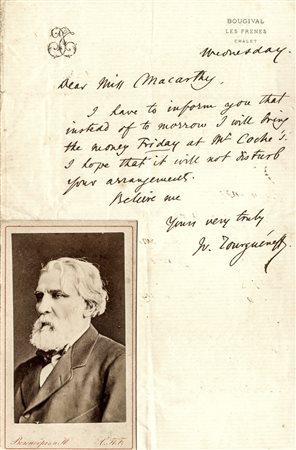 BOUGIVAL
LES FRENES
CHALET
Wednesday.
Dear Miss Macarthy,
I have to inform you that
instead of to morrow I will bring
the money Friday at Mr Coche's.
I hope that it will not disturb
your arrangements.
Believe me
Yours very truly
Iv. Tourguéneff